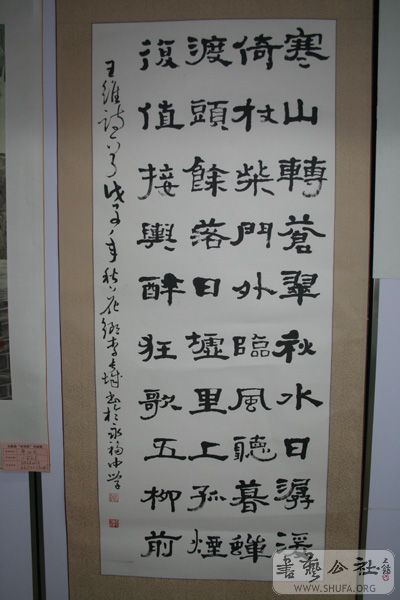 寒山轉蒼翠秋水日潺湲
倚杖柴門外臨風聽暮蟬
渡頭餘落日墟里上孤煙
復值接輿醉狂歌五柳前
王維詩一首戊子年秋花鄉李城書於永福中学
書藝公社
WWW.SHUFA.ORG